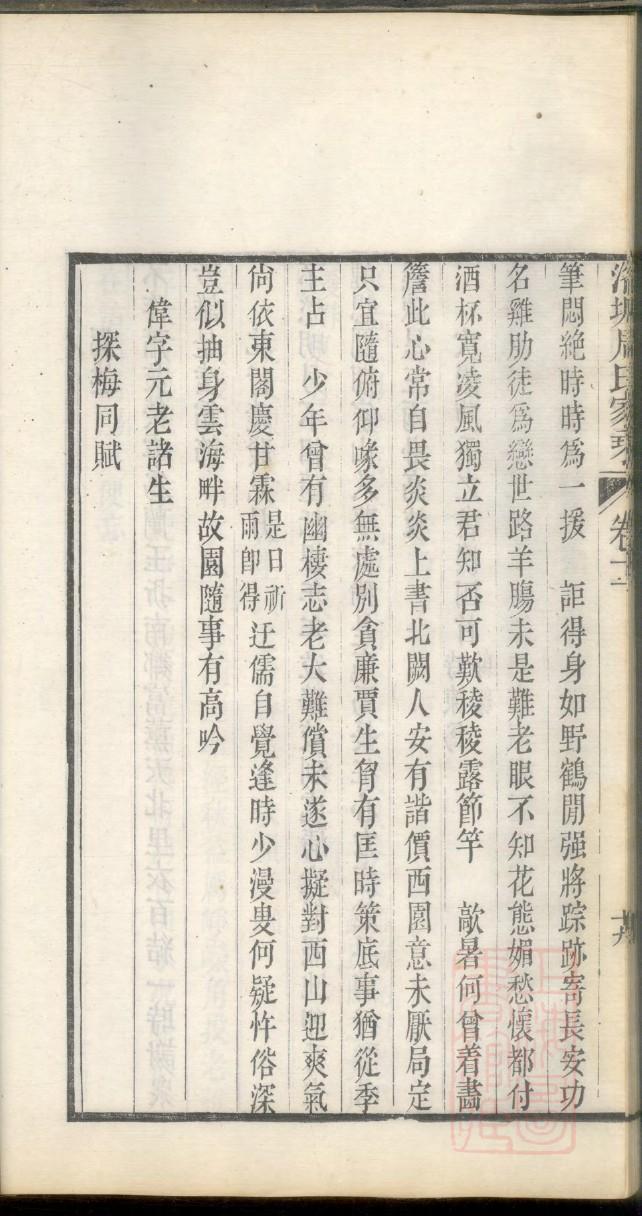 周氏家
筆悶絶時時爲一援　詎得身如野鶴閒强將踪跡寄長安功
名雞肋徒爲戀世路羊腸未是難老眼不知花態媚愁懷都付
酒杯寬凌風獨立君知否可歎稜稜露節竿　歊暑何曾着畵
簷此心常自畏炎炎上書北闕人安有諧價西園意未厭局定
只宜隨俯仰喙多無處別貪廉賈生胷有匡時策底事猶從季
主占　少年曾有幽棲志老大難償未遂心擬對西山迎爽氣
尙依東閣慶甘霖是日祈雨卽得迂儒自覺逢時少漫叟何疑忤俗深
豈似抽身雲海畔故園隨事有高吟
偉字元老諸生
探梅同賦